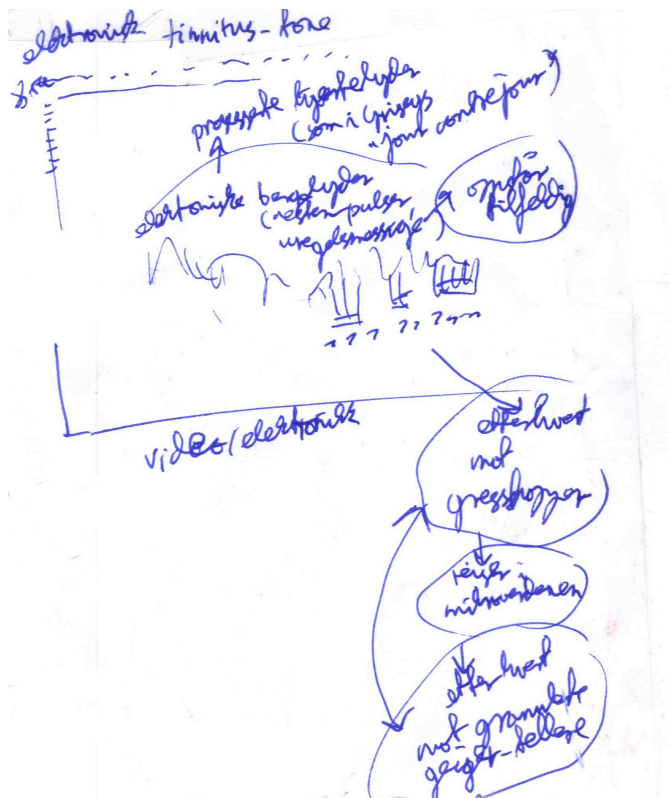 elektronisk tinnitus-tone
prosesserte
(som i Griseys
"jour contre jour")
elektroniske
(nesten pulser
uregelmessige)
tilfeldig
video/elektronikk
etterhvert
mot
gresshopper
mikroverdenen
etterhvert
mot granulerte
geiger-tellere